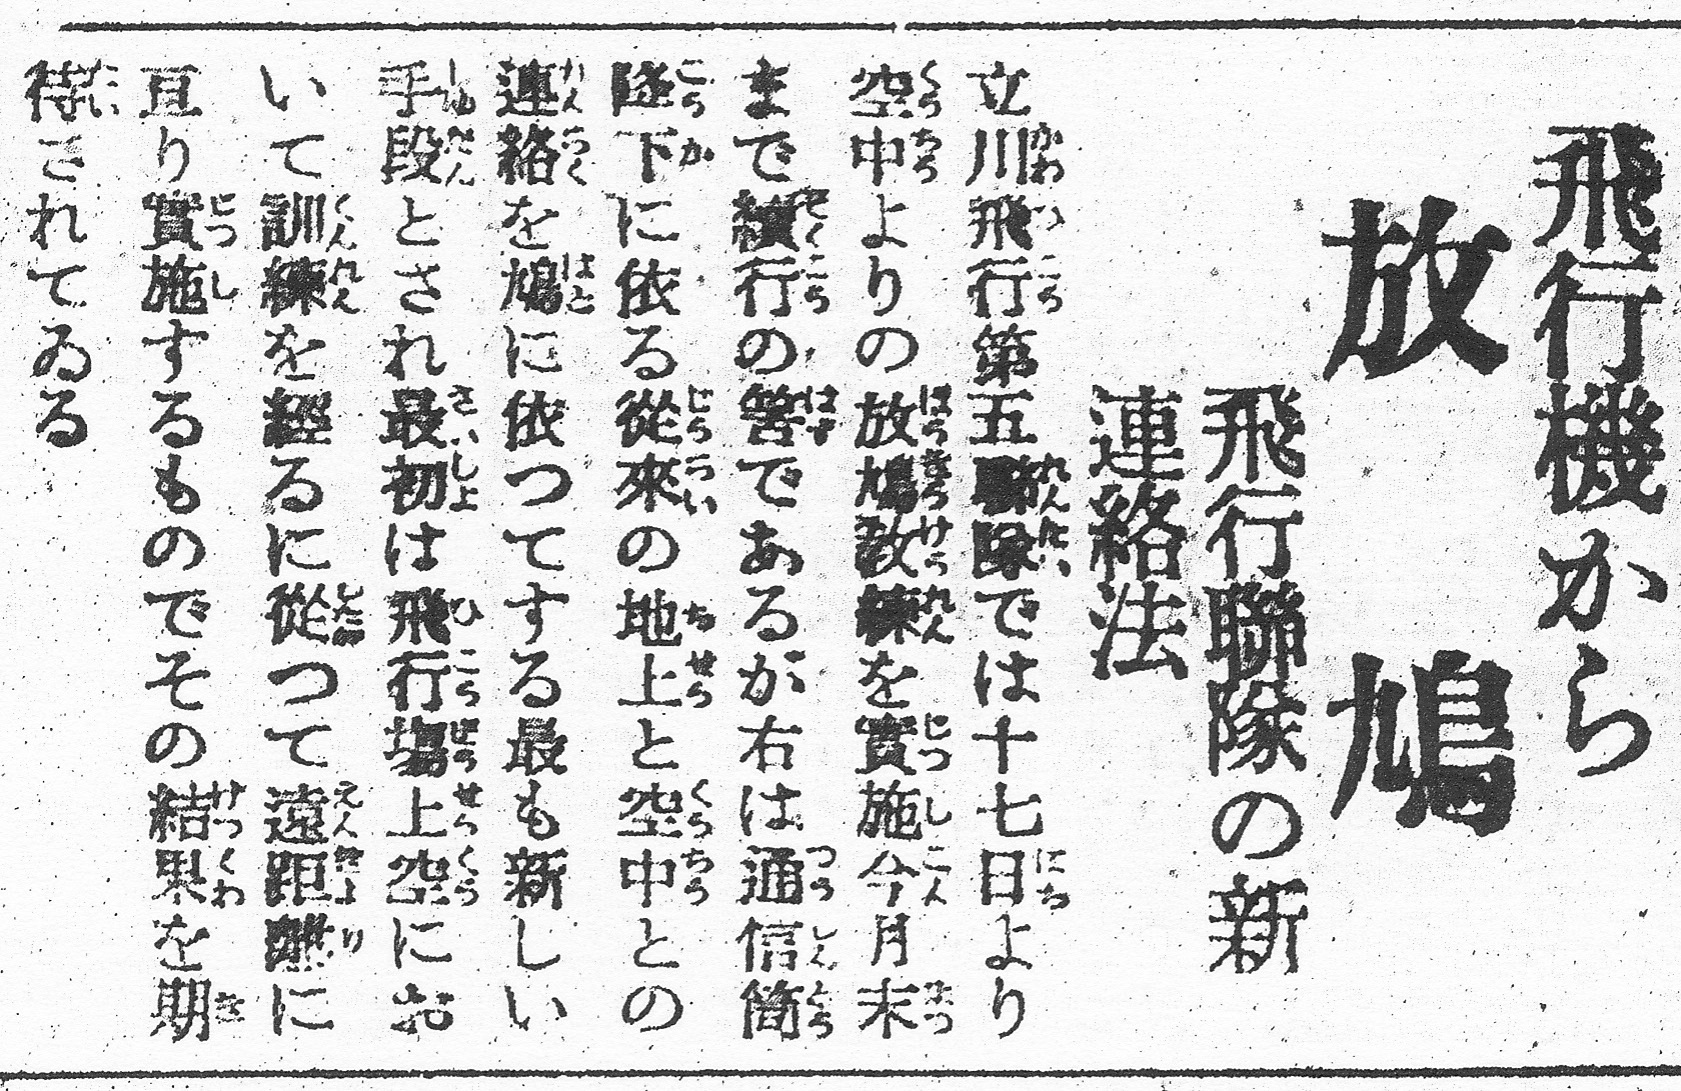 飛行機から
放鳩
飛行聯隊の新
連絡法
立川飛行第五聯隊では十七日より
空中よりの放鳩教練を實施今月末
まで續行の筈であるが右は通信筒
墜下に依る從來の地上と空中との
連絡を鳩に依つてする最も新しい
手段とされ最初は飛行場上空にお
いて訓練を經るに從つて遠距離に
亘り實施するものでその結果を期
待されてゐる